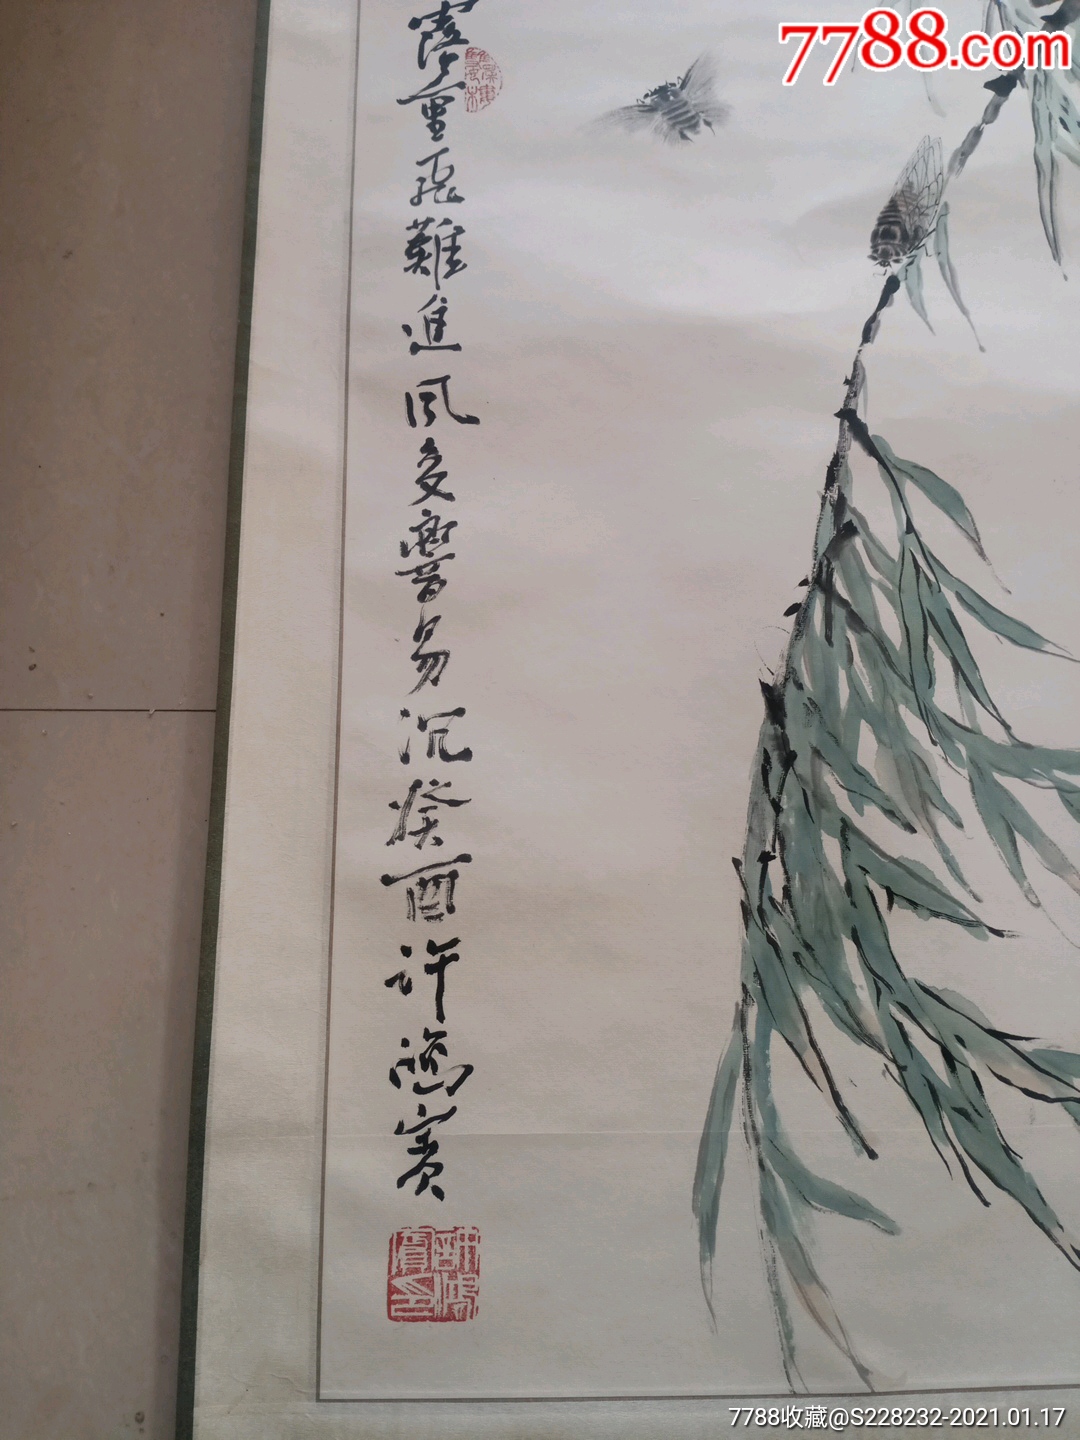 7788.com
露重飛難進風多響易沉癸酉許鴻賓
許鴻賓印
7788收藏@S228232-2021.01.17